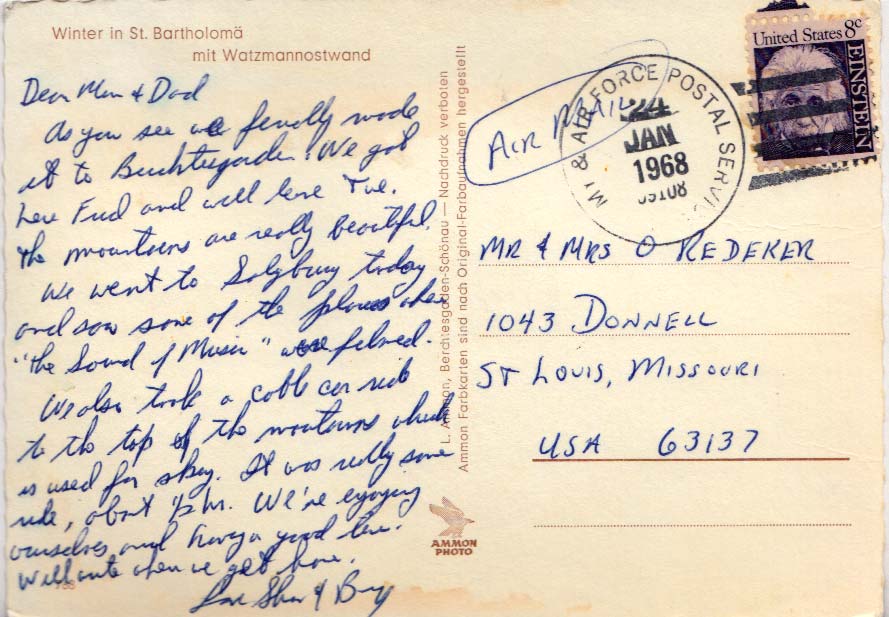 Winter in St. Bartholomä
mit Watzmannostwand
Dear Mom & Dad
As you see we finally made
it to Berchtesgaden. We got
here Fri and will leave Tue.
The mountains are really beautiful.
We went to Salzburg today
and saw some of the places where
"The Sound of Music" were filmed.
We also took a cable car ride
to the top of the mountains which
is used for skiing. It was really some
ride, about 1/2 hr. We're enjoying
ourselves and having a good time.
Will write when we get home.
Love
L. Ammon, Berchtesgaden-Schönau — Nachdruck verboten
Ammon Farbkarten sind nach Original-Farbaufnahmen hergestellt
AMMON
PHOTO
AIR MAIL
MY & AIR FORCE POSTAL SERVIC
24
JAN
1968
09108
United States 8c
EINSTEIN
MR & MRS O REDEKER
1043 DONNELL
ST LOUIS, MISSOURI
USA 63137